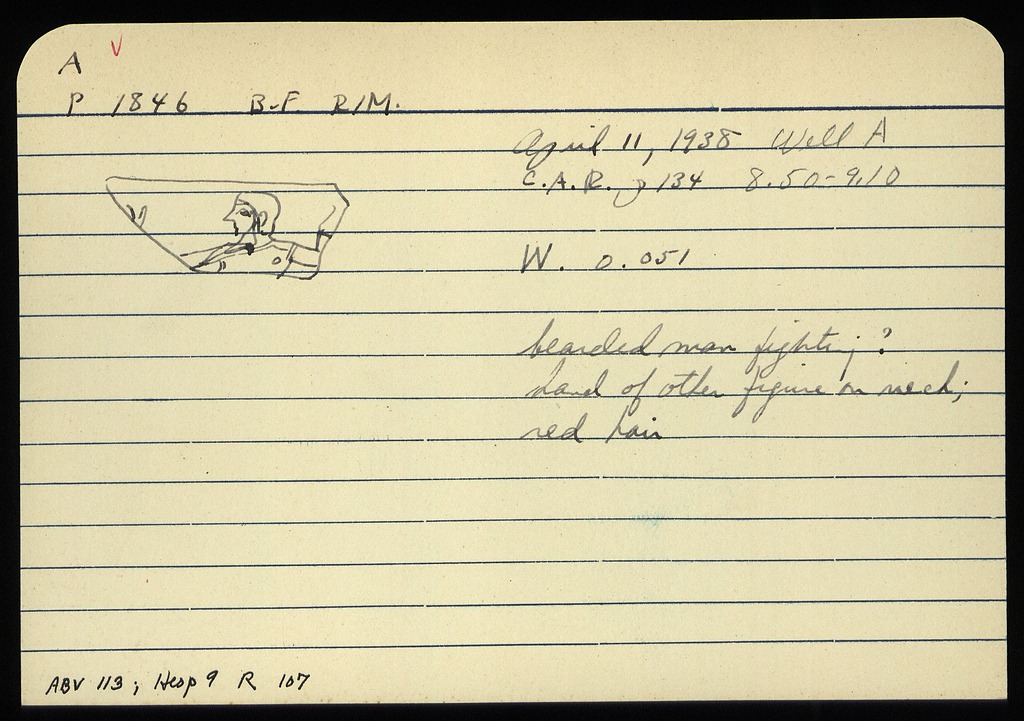 A V
P 1846 B-F RIM.
April 11, 1938 Well A
C.A.R. p 134 8.50-9.10
W. 0.051
bearded man fighting ?
hand of other figure on neck;
red hair
ABV 113; Hesp 9 R 107